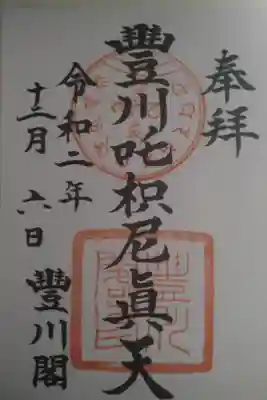 奉拝
豊川吒枳尼眞天
令和二年
十二月六日
豊川閣